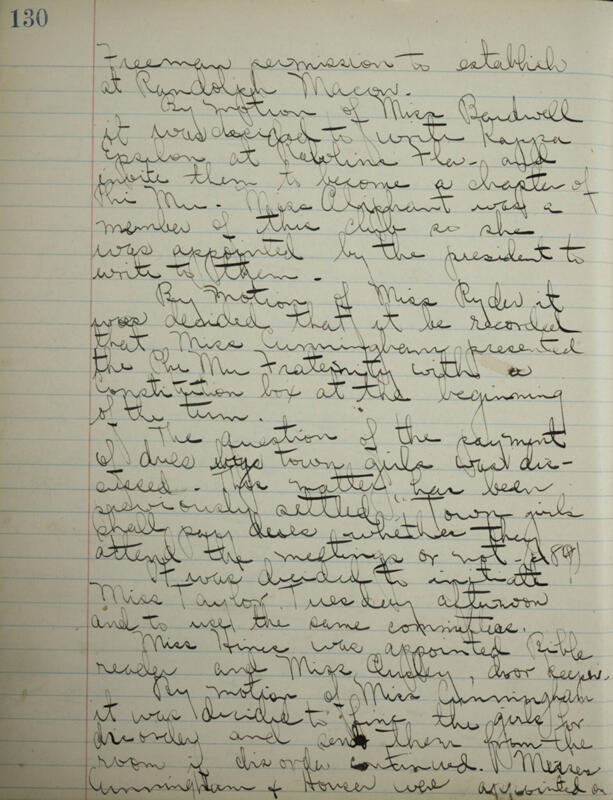 130
Freeman permission to establish
at Randolph Macon.
By motion of Miss Bardwell
it was decided to write Kappa
Epsilon at Fla. and
invite them to become a chapter of
Phi Mu. Miss Oliphant was a
member of this club so she
was appointed by the president to
write to them.
By motion of Miss Ryder it
was decided that it be recorded
that Miss Cunningham presented
the Phi Mu Fraternity with a
Constitution box at the beginning
of the term.
The question of the payment
of dues town girls was dis-
cussed. This matter has been
previously settled. Town girls
shall pay dues whether they
attend the meetings or not
It was decided to initiate
Miss Taylor Tuesday afternoon
and to use the same committees.
Miss Hines was appointed Bible
reader and Miss door keeper.
By motion of Miss Cunningham
it was decided to fine the girls for
disorder and send them from the
room if disorder continued. Misses
Cunningham + Houser were appointed on